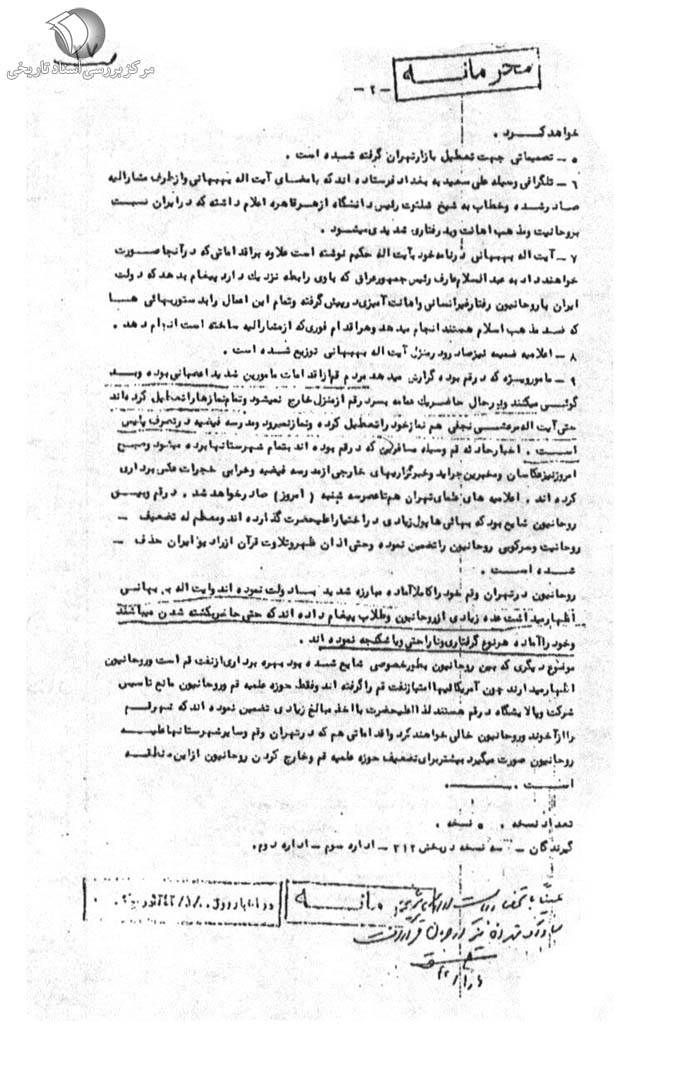 ۲۷
مرکز بررسی اسناد تاریخی
محرمانه
-۲-
خواهد کرد .
۵ – تصمیماتی جهت تعطیل بازار تهران گرفته شده است .
۶ – تلگرافی وسیله علی سعید به بغداد فرستاده اند که بامضای آیت اله بهبهانی و از طرف مشارالیه
صادر شده و خطاب به شیخ شلتوت رئیس دانشگاه ازهر قاهره اعلام داشته که در ایران نسبت
بروحانیت و مذهب اهانت و بد رفتاری شدیدی میشود .
۷ – آیت اله بهبهانی در نامه خود بآیت اله حکیم نوشته است علاوه بر اقداماتی که در آنجا صورت
خواهند داد به عبدالسلام عارف رئیس جمهور عراق که باوی رابطه نزدیک دارد پیغام بدهد که دولت
ایران با روحانیون رفتار غیرانسانی و اهانت آمیزی در پیش گرفته و تمام این اعمال را بدستور بهائی ها
که ضد مذهب اسلام هستند انجام میدهد و هر اقدام فوری که از مشارالیه ساخته است انجام دهد .
۸ – اعلامیه ضمیمه نیز صادر و در منزل آیت اله بهبهانی توزیع شده است .
۹ – مامور ویژه که در قم بوده گزارش میدهد مردم قم از اقدامات مامورین شدید اعصبانی بوده و بد
گوئی میکنند و در حال حاضر یک عمامه بسر در قم از منزل خارج نمیشود و تمام نمازها را تعطیل کرده اند
حتی آیت اله مرعشی نجفی هم نماز خود را تعطیل کرده و نماز نمیرود و مدرسه فیضیه در تصرف پلیس
است . اخبار حادثه قم وسیله مسافرین که در قم بوده اند بتمام شهرستانها برده میشود و صبح
امروز نیز عکاسان و مخبرین جراید و خبرگزاریهای خارجی از مدرسه فیضیه و خرابی حجرات عکس برداری
کرده اند . اعلامیه های علمای تهران هم تا عصر سه شنبه ( امروز ) صادر خواهد شد . در قم و بین
روحانیون شایع بود که بهائی ها پول زیادی در اختیار اعلیحضرت گذارده اند و معظم له تضعیف –
روحانیت و سرکوبی روحانیون را تضمین نموده و حتی اذان ظهر و تلاوت قرآن از رادیو ایران حذف –
شده است .
روحانیون در تهران و قم خود را کاملا آماده مبارزه شدید با دولت نموده اند و آیت اله بهبهانی
اظهار میداشت عده زیادی از روحانیون و طلاب پیغام داده اند که حتی حاضر بکشته شدن میباشند
و خود را آماده هر نوع گرفتاری و ناراحتی و یا شکنجه نموده اند .
موضوع دیگری که بین روحانیون بطور خصوصی شایع شده بود بهره برداری از نفت قم است و روحانیون
اظهار میدارند چون آمریکائیها امتیاز نفت قم را گرفته اند و فقط حوزه علمیه قم و روحانیون مانع تاسیس
شرکت و پالایشگاه در قم هستند لذا اعلیحضرت با اخذ مبالغ زیادی تضمین نموده اند که شهر قم
را از آخوند و روحانیون خالی خواهند کرد و اقداماتی هم که در تهران و قم و سایر شهرستانها علیه
روحانیون صورت میگیرد بیشتر برای تضعیف حوزه علمیه قم و خارج کردن روحانیون از این منطقه
است .
تعداد نسخه . ۵ نسخه .
گیرندگان – سه نسخه در بخش ۳۱۲ – اداره سوم – اداره دوم.
محرمانه